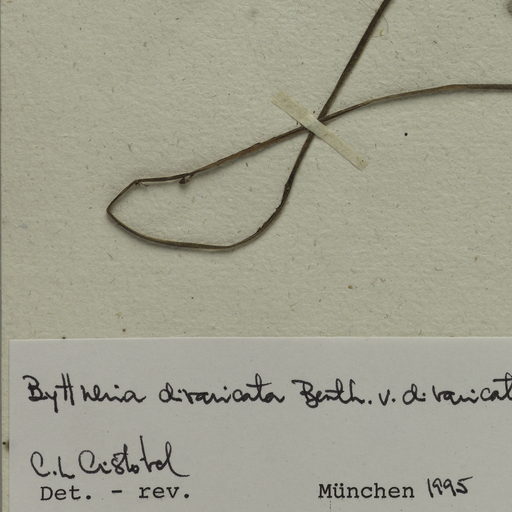 Byttneria divaricata Benth. v. divaricat
C.L Cristóbal
Det. - rev. München 1995